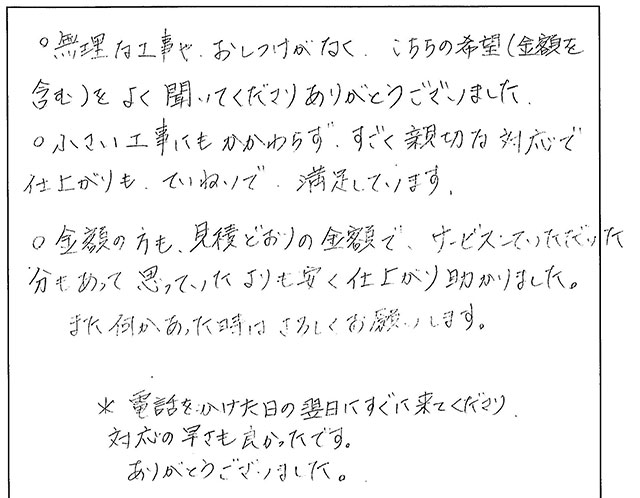 ○無理な工事や、おしつけがなく、こちらの希望(金額を
含む)をよく聞いてくださりありがとうございました。
○小さい工事にもかかわらず、すごく親切な対応で
仕上がりも、ていねいで、満足しています。
○金額の方も、見積どおりの金額で、サービスしていただいた
分もあって思っていたよりも安く仕上がり助かりました。
また何かあった時はよろしくお願いします。
*電話をかけた日の翌日にすぐに来てくださり、
対応の早さも良かったです。
ありがとうございました。